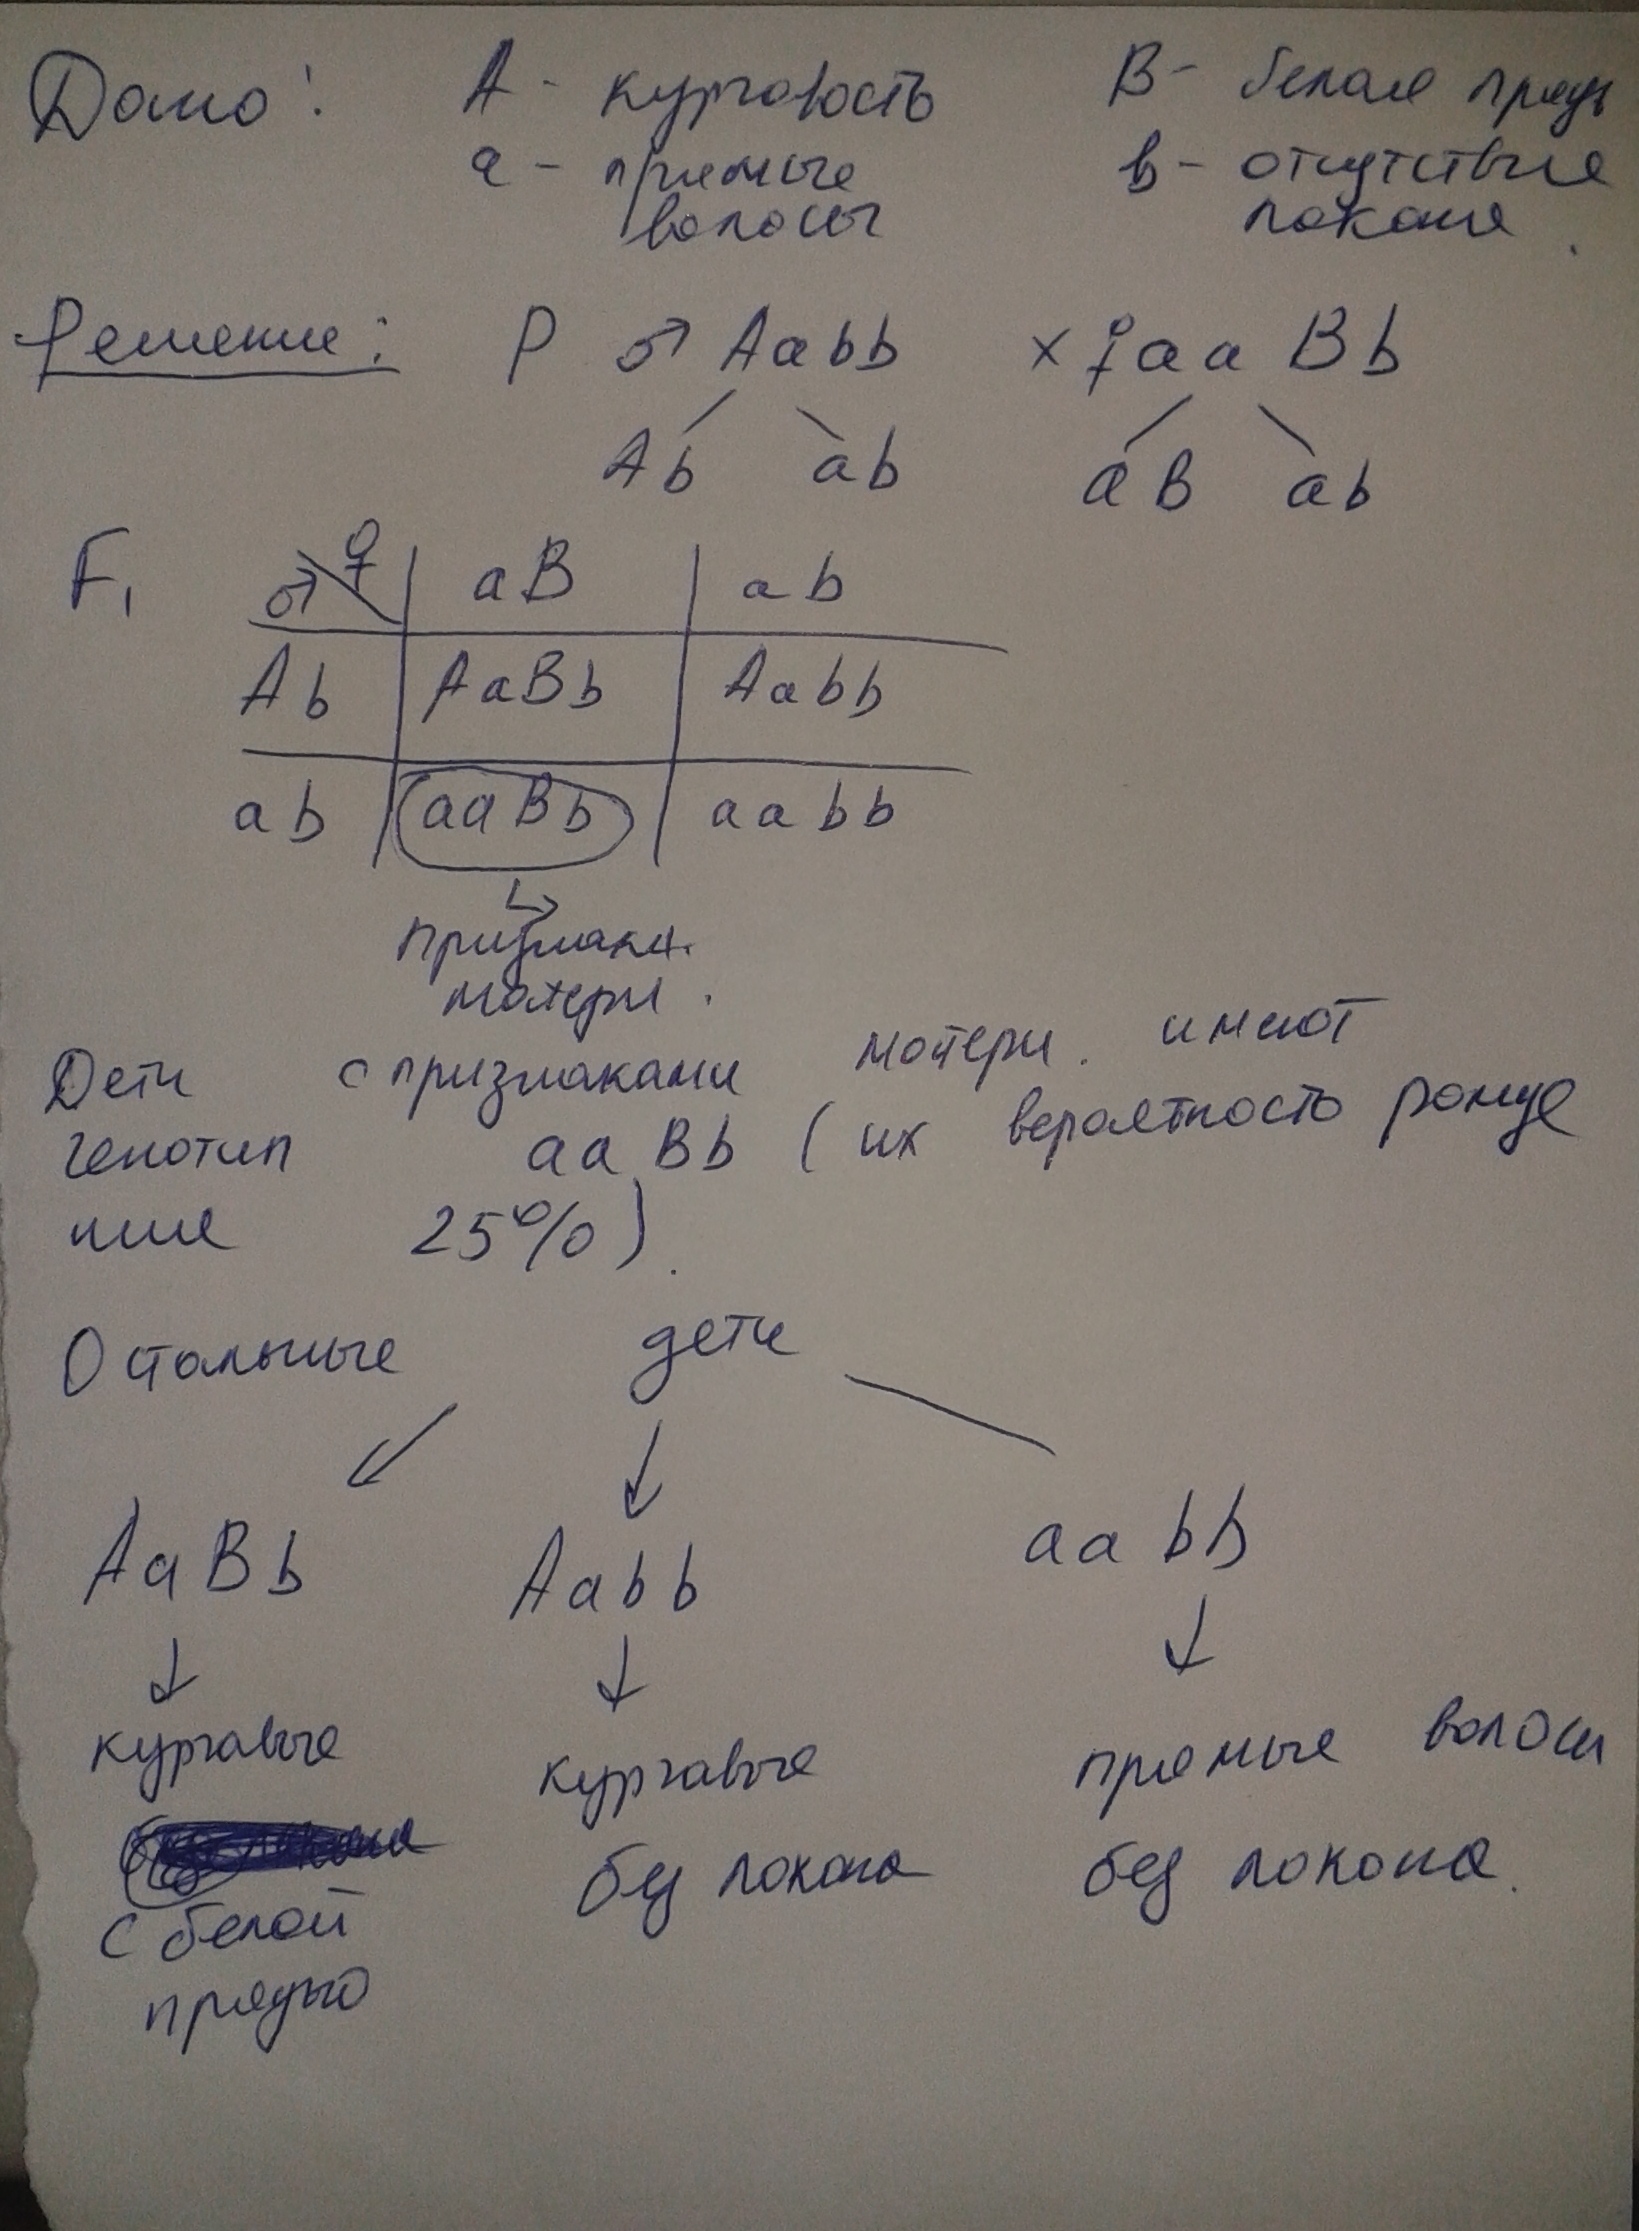 Дано: А - курчавость В - белая прядь
а - прямые в - отсутствие
волосы локона.
Решение: Р ♂ Aabb × ♀ aaBb
Ab ab aB ab
F₁ ♂ ♀ aB ab
Ab AaBb Aabb
ab aaBb aabb
признаки
матери.
Дети с признаками матери. имеют
генотип aaBb (их вероятность рожде
ния 25%).
Остальные дети
AaBb Aabb aabb
курчавые курчавые прямые волосы
без локона без локона.
с белой
прядью